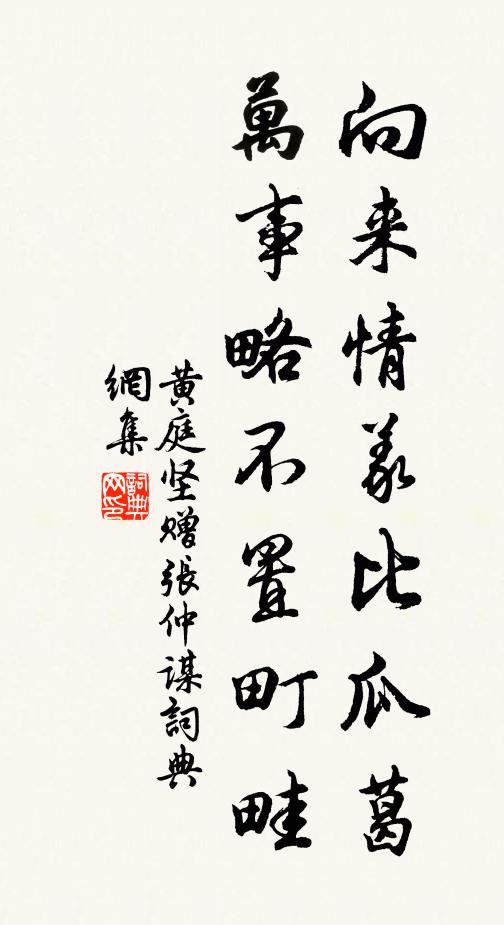 向来情義比瓜葛
萬事略不置町畦
黄庭坚赠張仲謀詞典
網集
詞典
网印